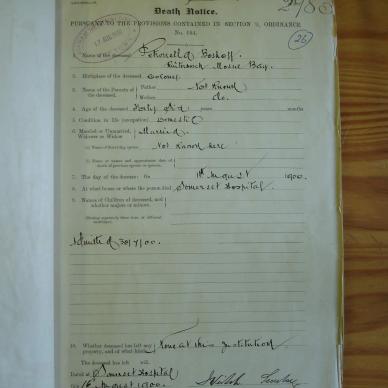 Death Notice.
PURSUANT TO THE PROVISIONS CONTAINED IN SECTION 9, ORDINANCE
No. 104.
26
1. Name of the deceased Petronella Boshoff.
Mossel Bay.
2. Birthplace of the deceased Colony
3. Names of the Parents of the deceased. Father Not Known
Mother do.
4. Age of the deceased Forty years months
5. Condition in life (occupation) Domestic
6. Married or Unmarried, Widower or Widow Married.
(a) Name of Surviving spouse Not Known here
(b) Name or names and approximate date of death of previous spouse or spouses.
7. The day of the decease On August 1900.
8. At what house or where the person died Somerset Hospital.
9. Names of Children of deceased, and whether majors or minors.
Admitted 30/7/00.
10. Whether deceased has left any property, and of what kind. None at this Institution
The deceased has left will.
Dated at Somerset Hospital
16 August 1900.